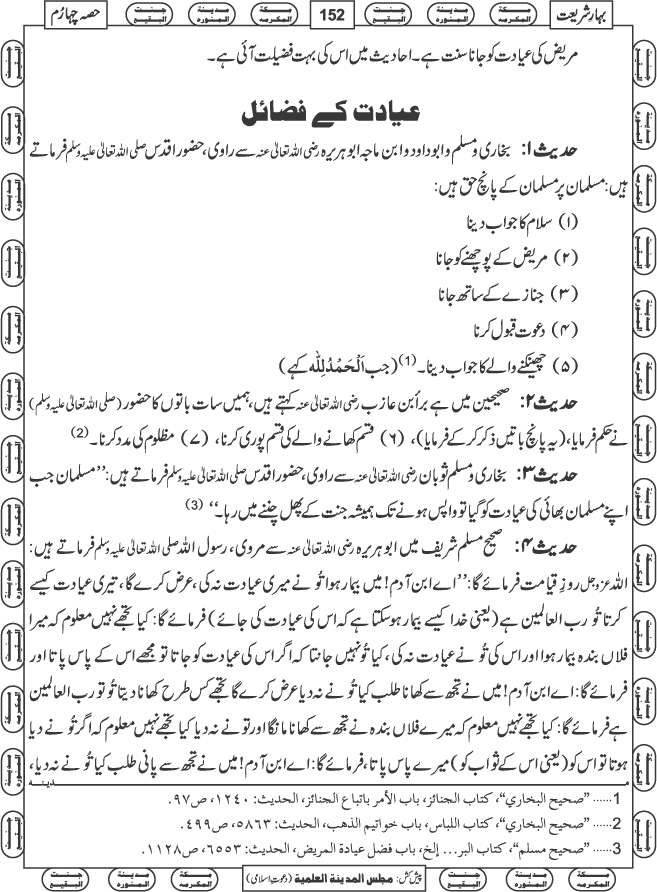 بہارِ شریعت
152
حصہ چہارم
مریض کی عیادت کو جانا سنت ہے۔ احادیث میں اس کی بہت فضیلت آئی ہے۔
عیادت کے فضائل
حدیث ۱: بخاری و مسلم و ابو داود و ابن ماجہ ابو ہریرہ رضی اللہ تعالیٰ عنہ سے راوی، حضور اقدس صلی اللہ تعالیٰ علیہ وسلم فرماتے
ہیں: مسلمان پر مسلمان کے پانچ حق ہیں:
(۱) سلام کا جواب دینا
(۲) مریض کے پوچھنے کو جانا
(۳) جنازے کے ساتھ جانا
(۴) دعوت قبول کرنا
(۵) چھینکنے والے کا جواب دینا۔(1) (جب اَلْحَمْدُلِلّٰه کہے)
حدیث ۲: صحیحین میں ہے براَبن عازب رضی اللہ تعالیٰ عنہ کہتے ہیں، ہمیں سات باتوں کا حضور (صلی اللہ تعالیٰ علیہ وسلم)
نے حکم فرمایا، (یہ پانچ باتیں ذکر کرکے فرمایا)، (۶) قسم کھانے والے کی قسم پوری کرنا، (۷) مظلوم کی مدد کرنا۔(2)
حدیث ۳: بخاری و مسلم ثوبان رضی اللہ تعالیٰ عنہ سے راوی، حضور اقدس صلی اللہ تعالیٰ علیہ وسلم فرماتے ہیں: ’’مسلمان جب
اپنے مسلمان بھائی کی عیادت کو گیا تو واپس ہونے تک ہمیشہ جنت کے پھل چننے میں رہا۔‘‘ (3)
حدیث ۴: صحیح مسلم شریف میں ابو ہریرہ رضی اللہ تعالیٰ عنہ سے مروی، رسول اللہ صلی اللہ تعالیٰ علیہ وسلم فرماتے ہیں:
اللہ عزوجل روزِ قیامت فرمائے گا: ’’اے ابن آدم! میں بیمار ہوا تُو نے میری عیادت نہ کی، عرض کرے گا، تیری عیادت کیسے
کرتا تُو رب العالمین ہے (یعنی خدا کیسے بیمار ہو سکتا ہے کہ اس کی عیادت کی جائے) فرمائے گا: کیا تجھے نہیں معلوم کہ میرا
فلاں بندہ بیمار ہوا اور اس کی تُو نے عیادت نہ کی، کیا تُو نہیں جانتا کہ اگر اس کی عیادت کو جاتا تو مجھے اس کے پاس پاتا اور
فرمائے گا: اے ابن آدم! میں نے تجھ سے کھانا طلب کیا تُو نے نہ دیا عرض کرے گا تجھے کس طرح کھانا دیتا تُو تو رب العالمین
ہے فرمائے گا: کیا تجھے نہیں معلوم کہ میرے فلاں بندہ نے تجھ سے کھانا مانگا اور تو نے نہ دیا کیا تجھے نہیں معلوم کہ اگر تُو نے دیا
ہوتا تو اس کو (یعنی اس کے ثواب کو) میرے پاس پاتا، فرمائے گا: اے ابن آدم! میں نے تجھ سے پانی طلب کیا تُو نے نہ دیا،
1...... ”صحيح البخاري“، كتاب الجنائز، باب الأمر باتباع الجنائز، الحديث: ١٢٤٠، ص٩٧.
2...... ”صحيح البخاري“، كتاب اللباس، باب خواتيم الذهب، الحديث: ٥٨٦٣، ص٤٩٩.
3...... ”صحيح مسلم“، كتاب البر... إلخ، باب فضل عيادة المريض، الحديث: ٦٥٥٣، ص١١٢٨.
پیش کش: مجلس المدينة العلمية (دعوتِ اسلامی)